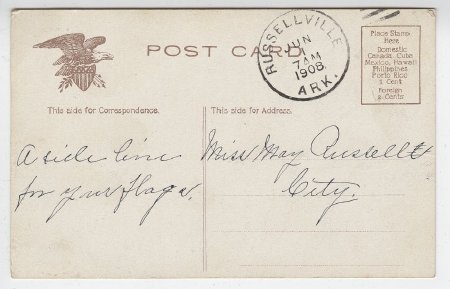 POST CARD
RUSSELLVILLE
JUN
1
7 AM
1908
ARK.
Place Stamp
Here
Domestic
Canada, Cuba
Mexico, Hawaii
Philippines
Porto Rico
1 Cent
Foreign
2 Cents
This side for Correspondence.
This side for Address.
A side line
for your
Miss May Russell
City.